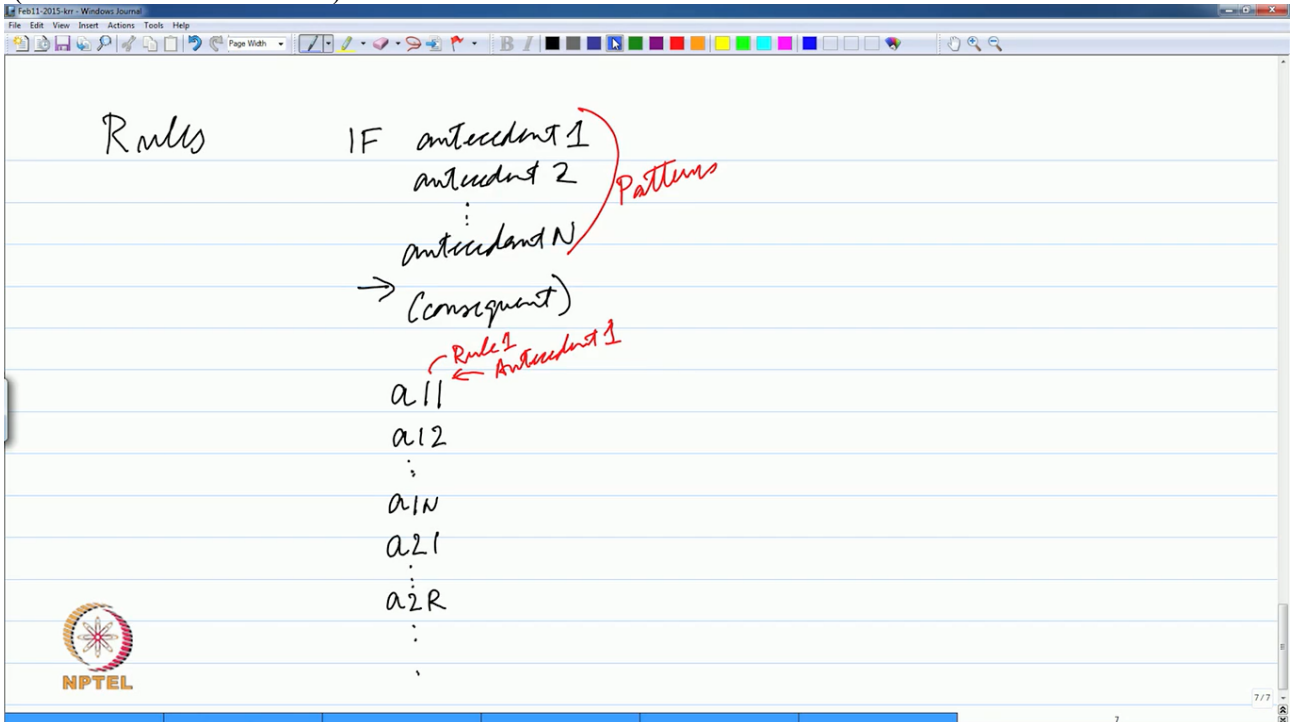 Feb11-2015-krr - Windows Journal
File Edit View Insert Actions Tools Help
Page Width
B I
Rules IF antecedent 1
antecedent 2
Patterns
antecedent N
→ (consequent)
Rule 1
← Antecedent 1
a11
a12
a1N
a21
a2R
NPTEL
7/7
7